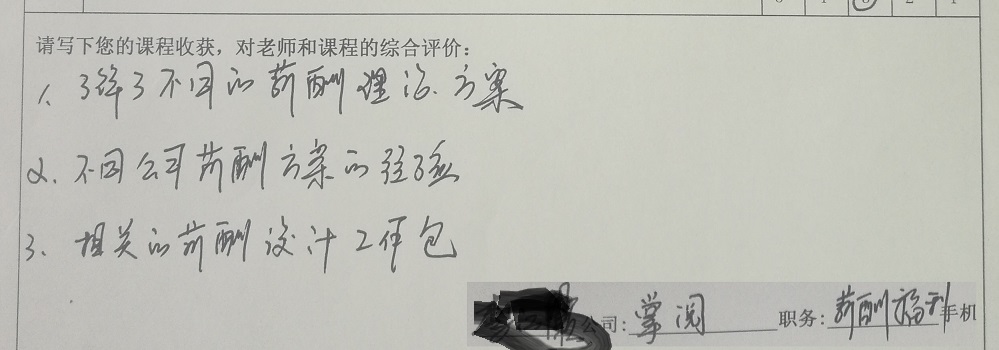 请写下您的课程收获，对老师和课程的综合评价：
1、了解了不同的薪酬理论方案
2、不同公司薪酬方案的经验
3、相关的薪酬设计工作包
公司：掌阅 职务：薪酬福利 手机